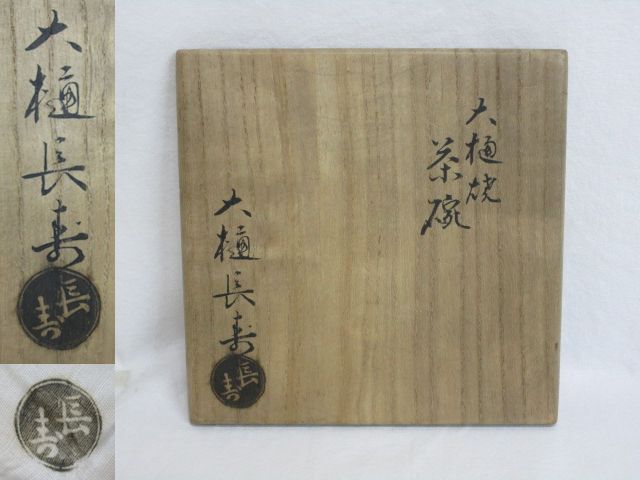 大樋長寿
長寿
長寿
大樋焼
茶碗
大樋長寿
長寿